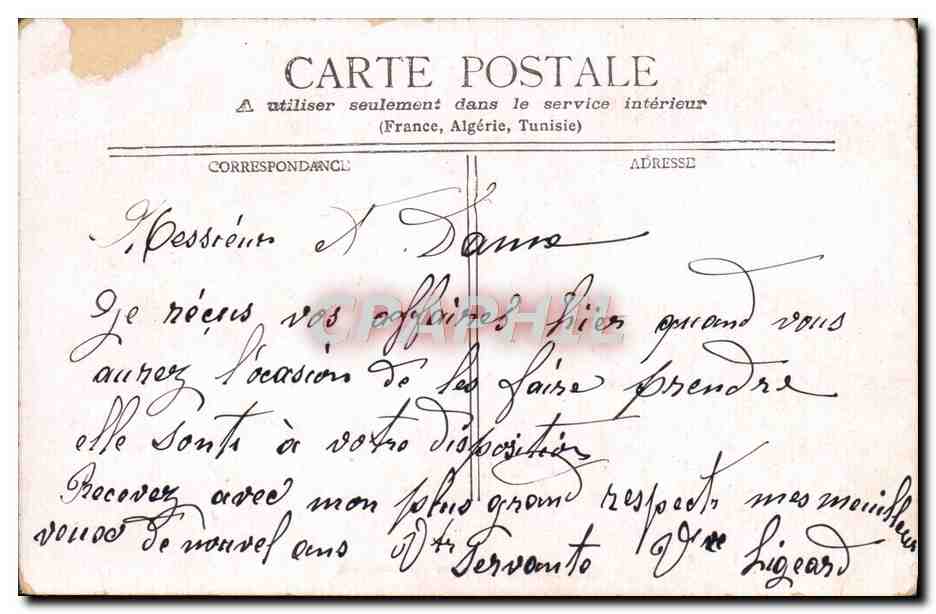 CARTE POSTALE
A utiliser seulement dans le service intérieur
(France, Algérie, Tunisie)
CORRESPONDANCE
ADRESSE
Messiéur et Dame
CPAPHIL
Je réçus vos affaires hier quand vous
aurez l'ocasion de les faire prendre
elle sonts à votre disposition
Recevez avec mon plus grand respect mes meuilleur
veuux de nouvel ans Vtr Servante Vve Ligeard